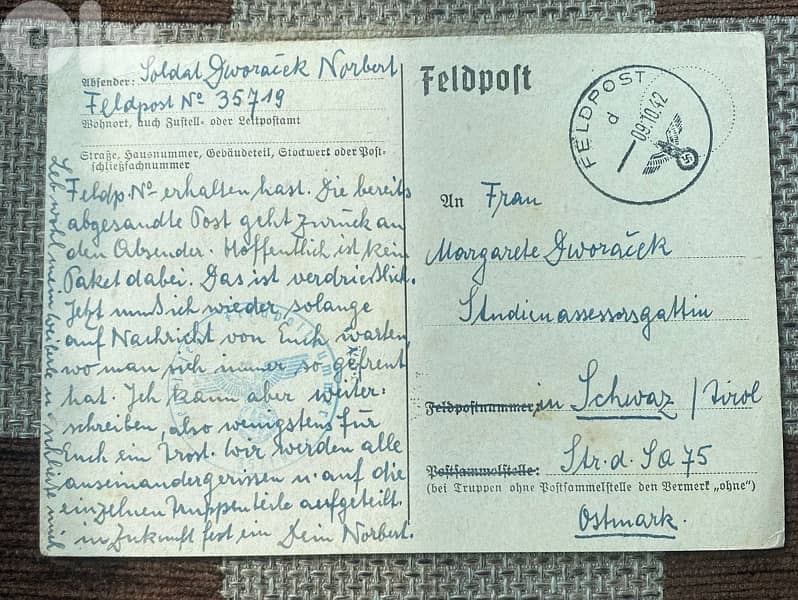 Absender: Soldat Dworaček Norbert
Feldpost No 35719
Wohnort, auch Zustell- oder Leitpostamt
Straße, Hausnummer, Gebäudeteil, Stockwerk oder Post-
schließfachnummer
Feldp. No erhalten hast. Die bereits
abgesandte Post geht zurück an
den Absender. Hoffentlich ist kein
Paket dabei. Das ist verdrießlich.
Jetzt muß ich wieder solange
auf Nachricht von Euch warten,
wo man sich immer so gefreut
hat. Ich kann aber weiter-
schreiben, also wenigstens für
Euch ein Trost. Wir werden alle
auseinandergerissen u. auf die
einzelnen Truppenteile aufgeteilt.
in Zukunft fest ein Dein Norbert.
Leb wohl mein u. schließe mich
Feldpost
FELDPOST
d
09.10.42
An Frau
Margarete Dworaček
Studienassessorsgattin
Feldpostnummer, in Schwaz / Tirol
Postsammelstelle: Str. d. SA 75
(bei Truppen ohne Postsammelstelle den Vermerk „ohne")
Ostmark.